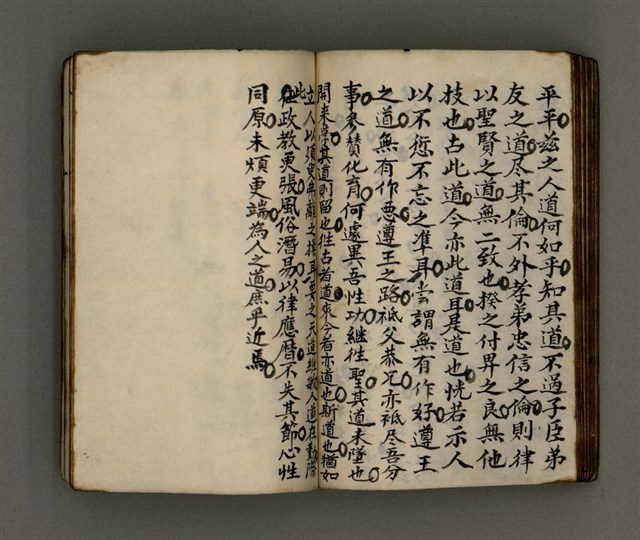 平平茲之人道何如乎知其道不過子臣弟
友之道尽其倫不外孝弟忠信之倫則律
以聖賢之道無二致也揆之付畀之良無他
技也古此道今亦此道耳是道也恍若示人
以不愆不忘之準耳尝謂無有作好遵王
之道無有作惡遵王之路祗父恭兄亦祗尽吾分
事參贊化育何處異吾性功継徃聖其道未墜也
開来學其道則留也徃古者道來今者亦道也斯道也猶如
立人以須更之天道人道在
此政教更張風俗潛易以律應曆不失其節心性
同原未煩更端為人之道庶乎近焉